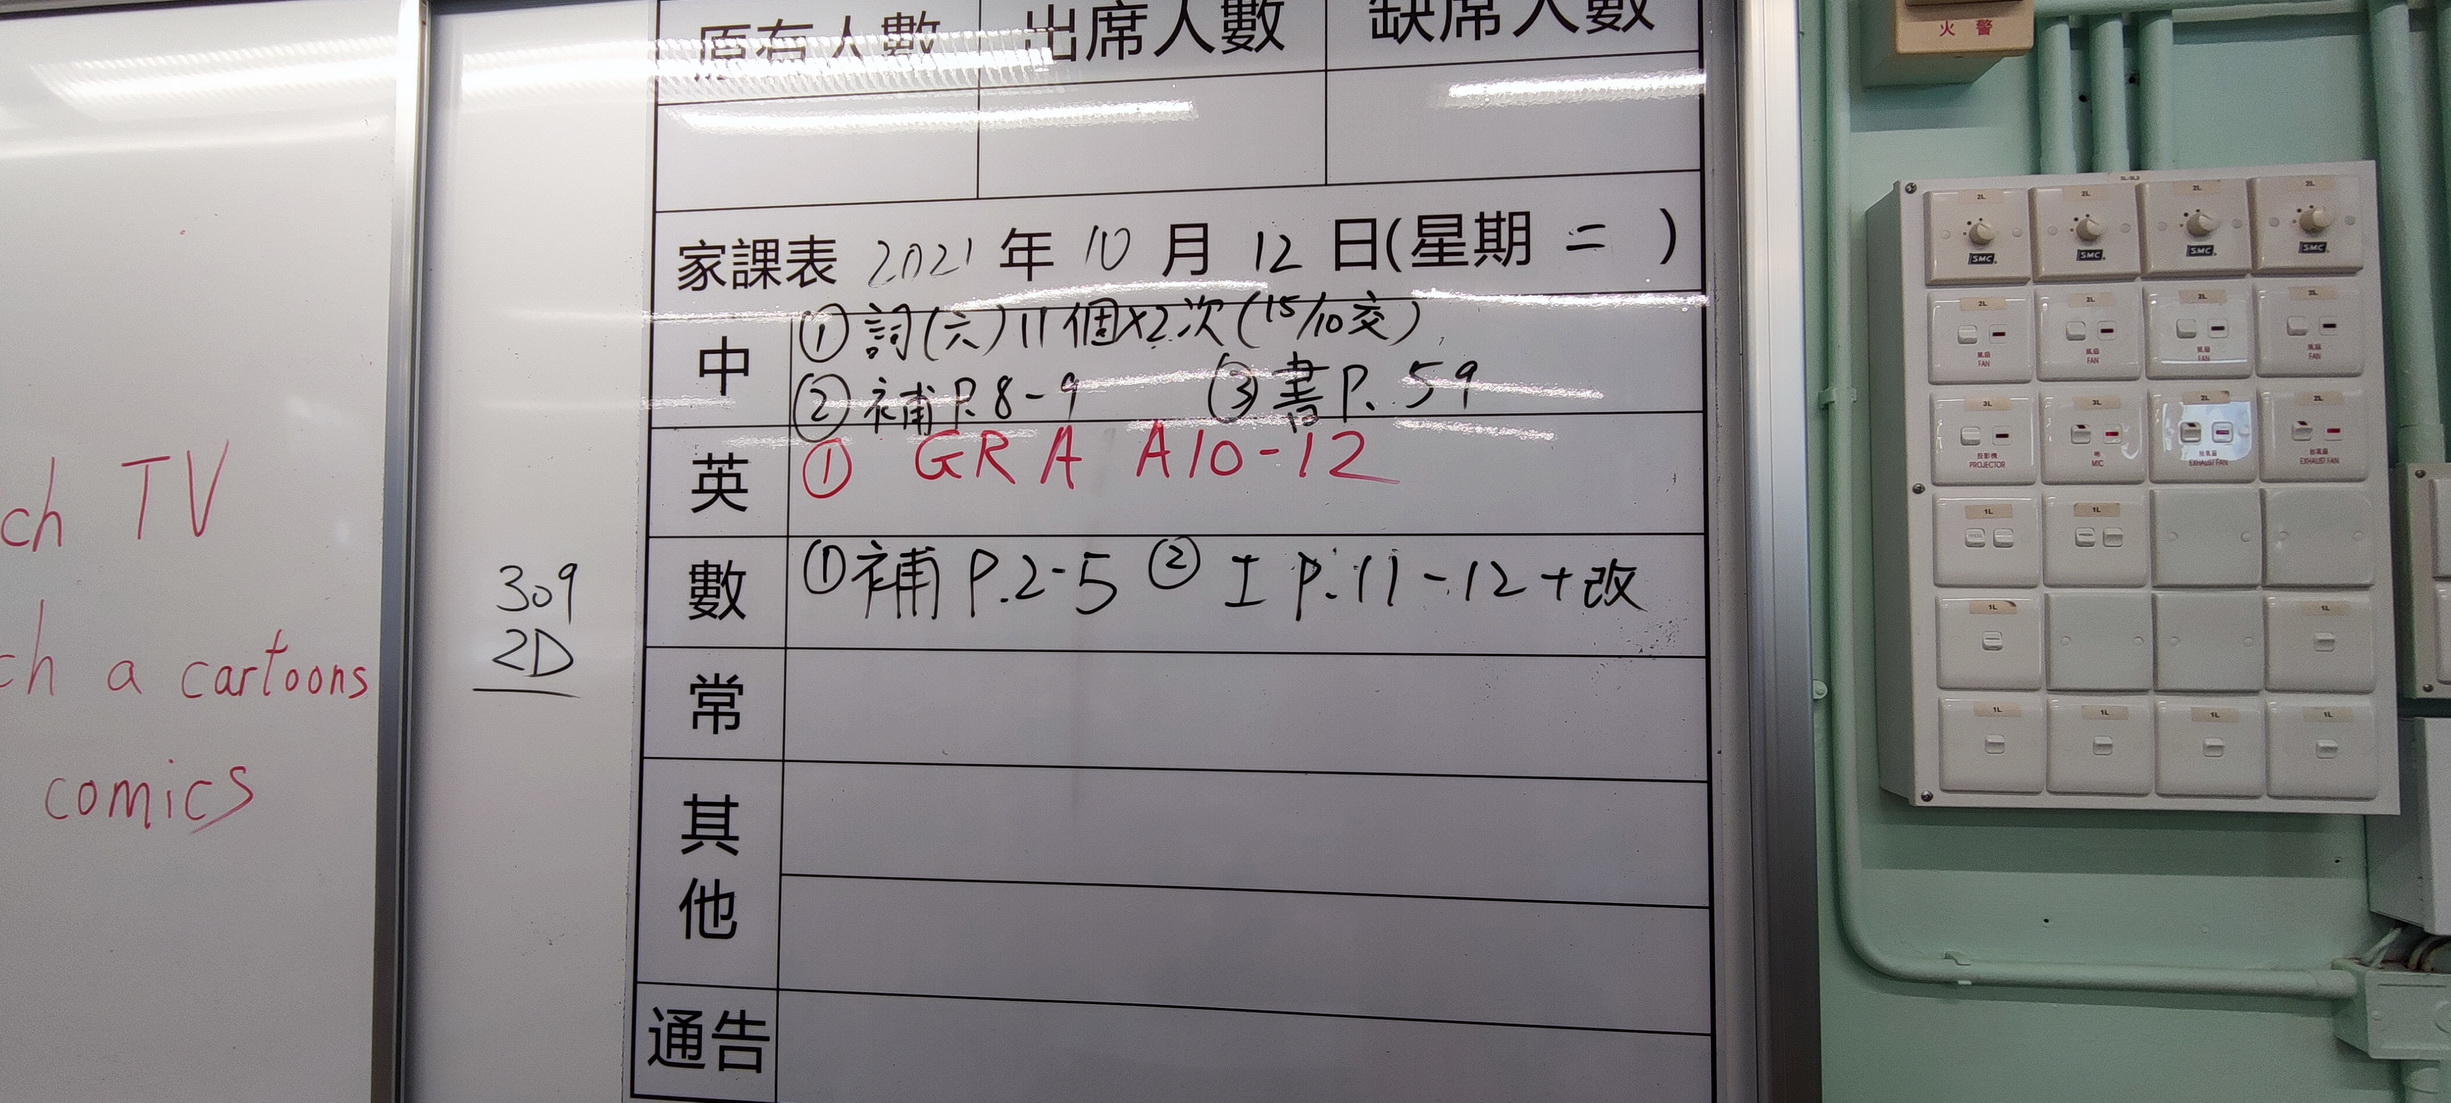 原有人數 出席人數 缺席人數
家課表 2021 年 10 月 12 日(星期 二 )
中 ① 詞(六)11個×2次(15/10交)
② 補P.8-9 ③ 書P. 59
英 ① GRA A10-12
數 ① 補 P.2-5 ② 工 P.11-12+改
常
其他
通告
ch TV
ch a cartoons
comics
309
2D
火警
2L 2L 2L 2L
SMC SMC SMC SMC
2L 2L 2L 2L
風扇 風扇 風扇 風扇
FAN FAN FAN FAN
3L 3L 2L 2L
投影機 咪 抽氣扇 抽氣扇
PROJECTOR MIC EXHAUST FAN EXHAUST FAN
1L 1L
1L 1L
1L 1L 1L 1L